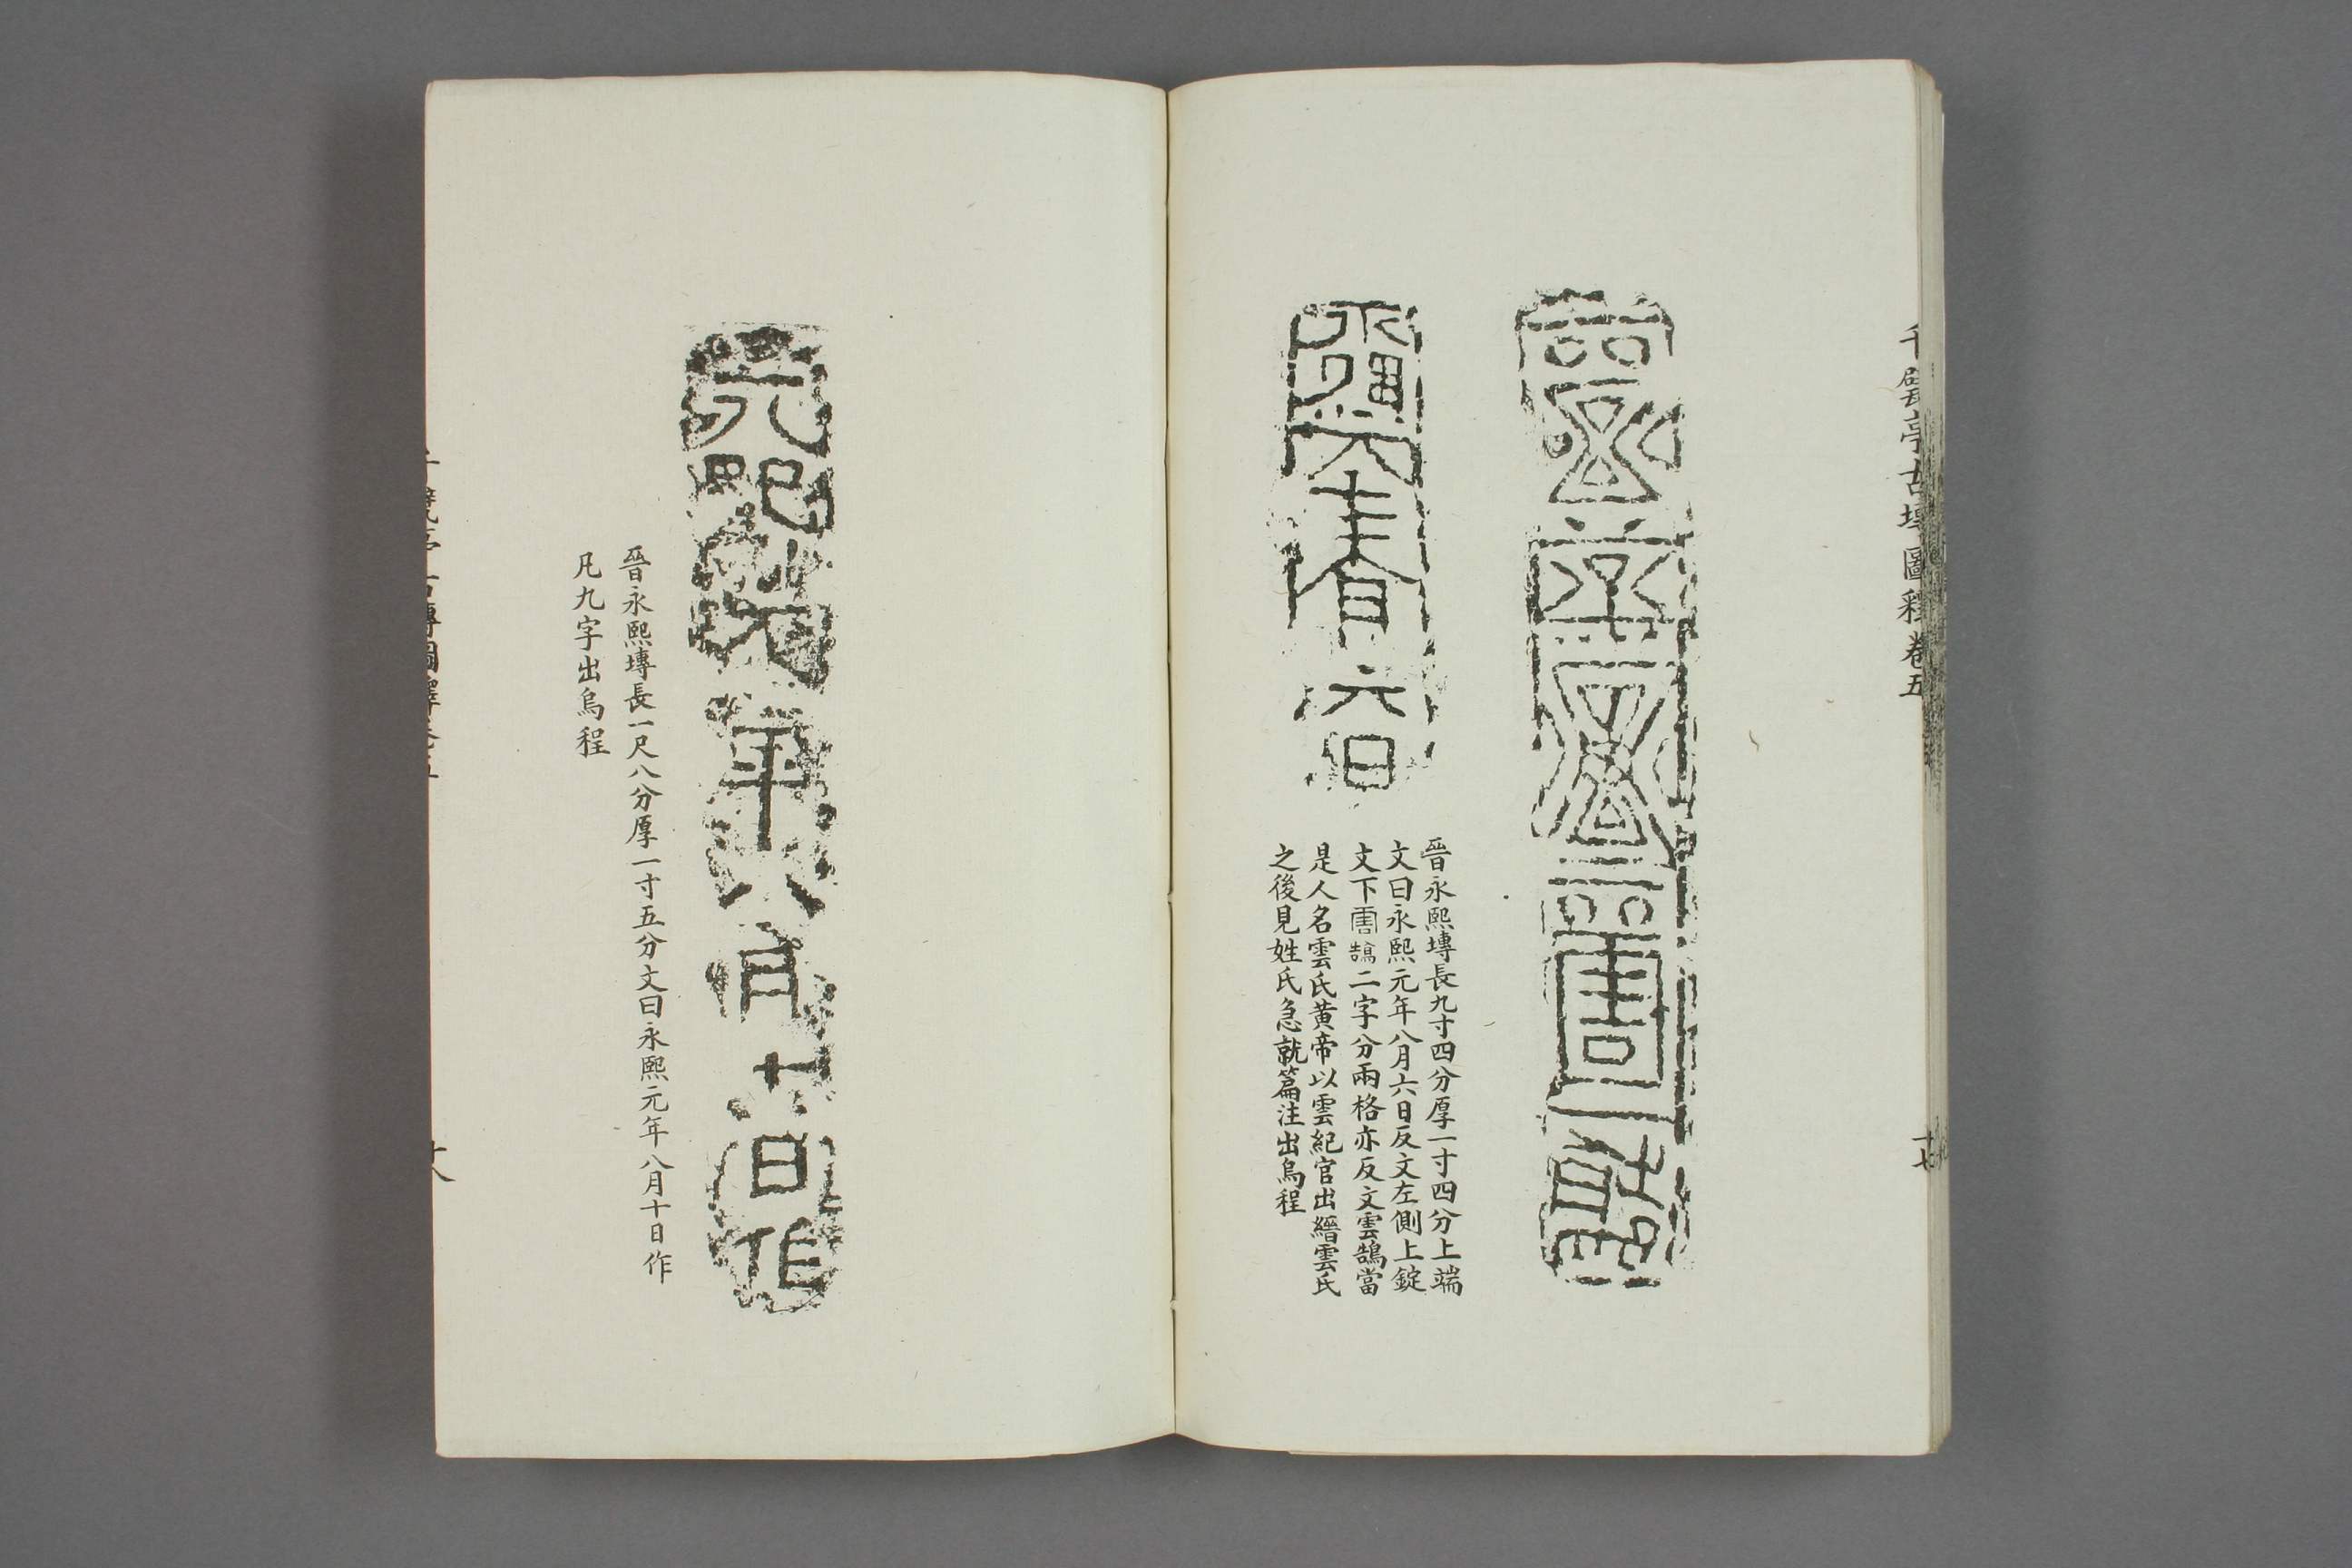 千甓亭古塼圖釋卷五
十七
永熙元年八月六日
晉永熙塼長九寸四分厚一寸四分上端
文曰永熙元年八月六日反文左側上錠
文下䨓鵠二字分兩格亦反文雲鵠當
是人名雲氏黃帝以雲紀官出縉雲氏
之後見姓氏急就篇注出烏程
永熙元年八月十日作
晉永熙塼長一尺八分厚一寸五分文曰永熙元年八月十日作
凡九字出烏程
千甓亭古塼圖釋卷五
十八